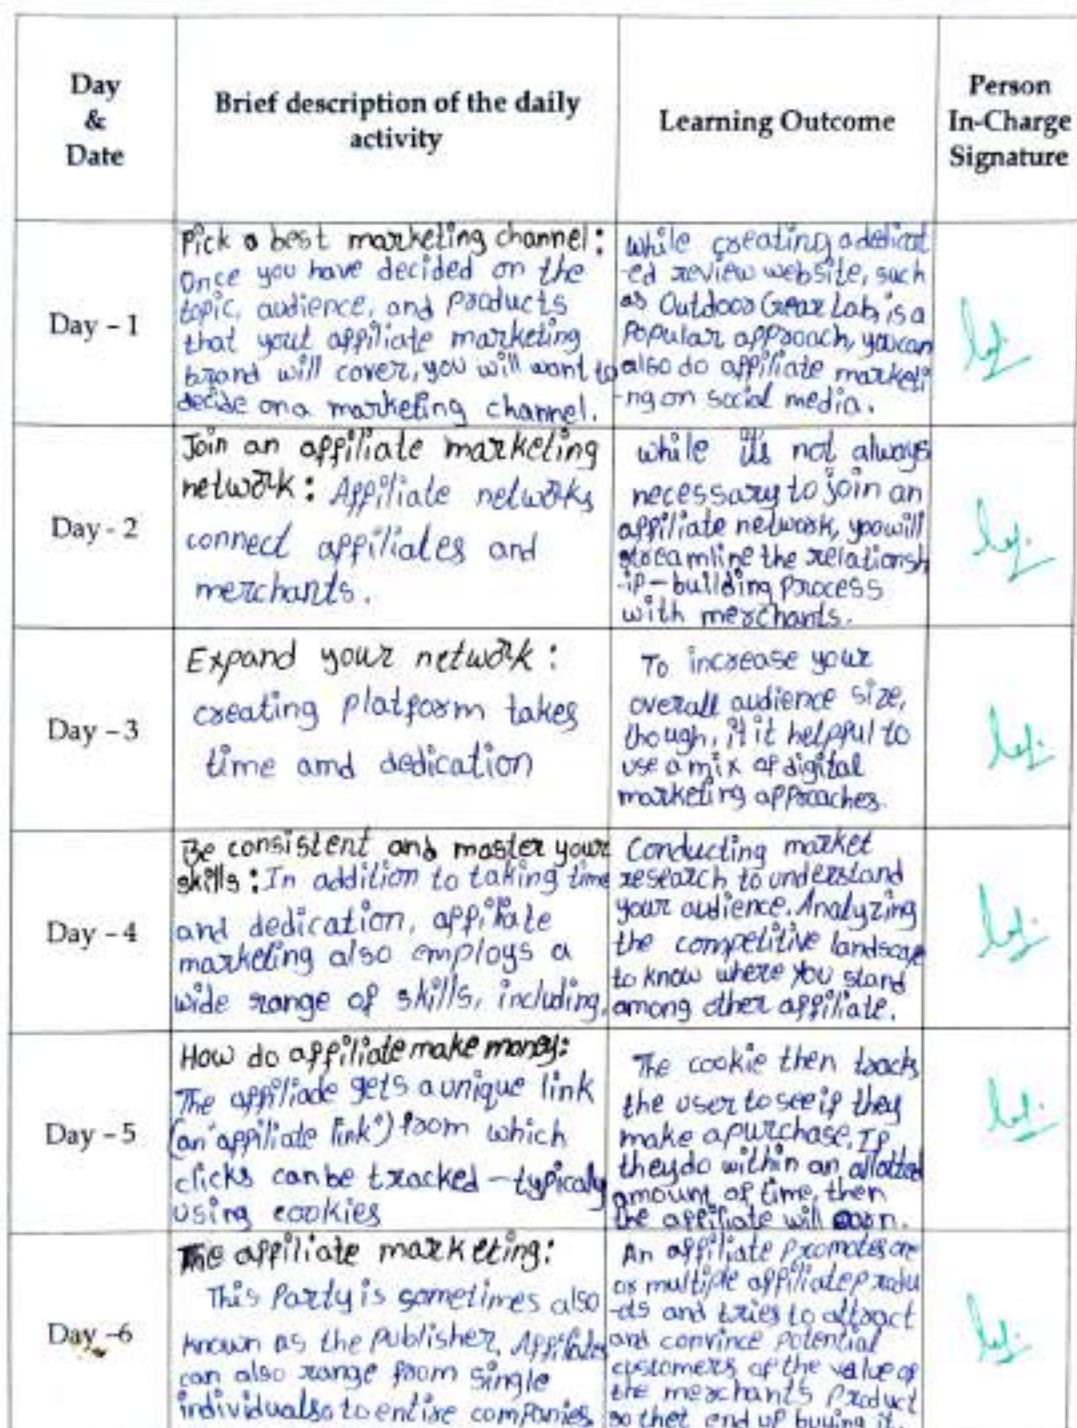 Day
&
Date
Brief description of the daily
activity
Learning Outcome
Person
In-Charge
Signature
Day - 1
Pick a best marketing channel:
Once you have decided on the
topic, audience, and products
that yout affiliate marketing
brand will cover, you will want to
decide on a marketing channel.
While creating a dedicat
-ed review website, such
as Outdoor Gear Lab, is a
Popular approach, you can
also do affiliate marketi
-ng on social media.
Day - 2
Join an affiliate marketing
network: Affiliate networks
connect affiliates and
merchants.
while it's not always
necessary to join an
affiliate network, you will
streamline the relationsh
-ip-building process
with merchants.
Day - 3
Expand your network:
creating platform takes
time amd dedication
To increase your
overall audience size,
though, it helpful to
use a mix of digital
marketing approaches.
Day - 4
Be consistent and master your
skills: In addition to taking time
and dedication, affiliate
marketing also employs a
wide range of skills, including,
Conducting market
research to understand
your audience. Analyzing
the competitive landscape
to know where you stand
among other affiliate.
Day - 5
How do affiliate make money:
The affiliade gets a unique link
(an "affiliate link") from which
clicks can be tracked - typically
using cookies
The cookie then tracks
the user to see if they
make a purchase. If
they do within an allotted
amount of time, then
the affiliate will earn.
Day -6
The affiliate marketing:
This Party is sometimes also
known as the publisher, Affiliates
can also range from single
individuals to entire companies
An affiliate promotes one
or multiple affiliate produ
-cts and tries to attract
and convince potential
customers of the value of
the merchants product
so that end up buying it.